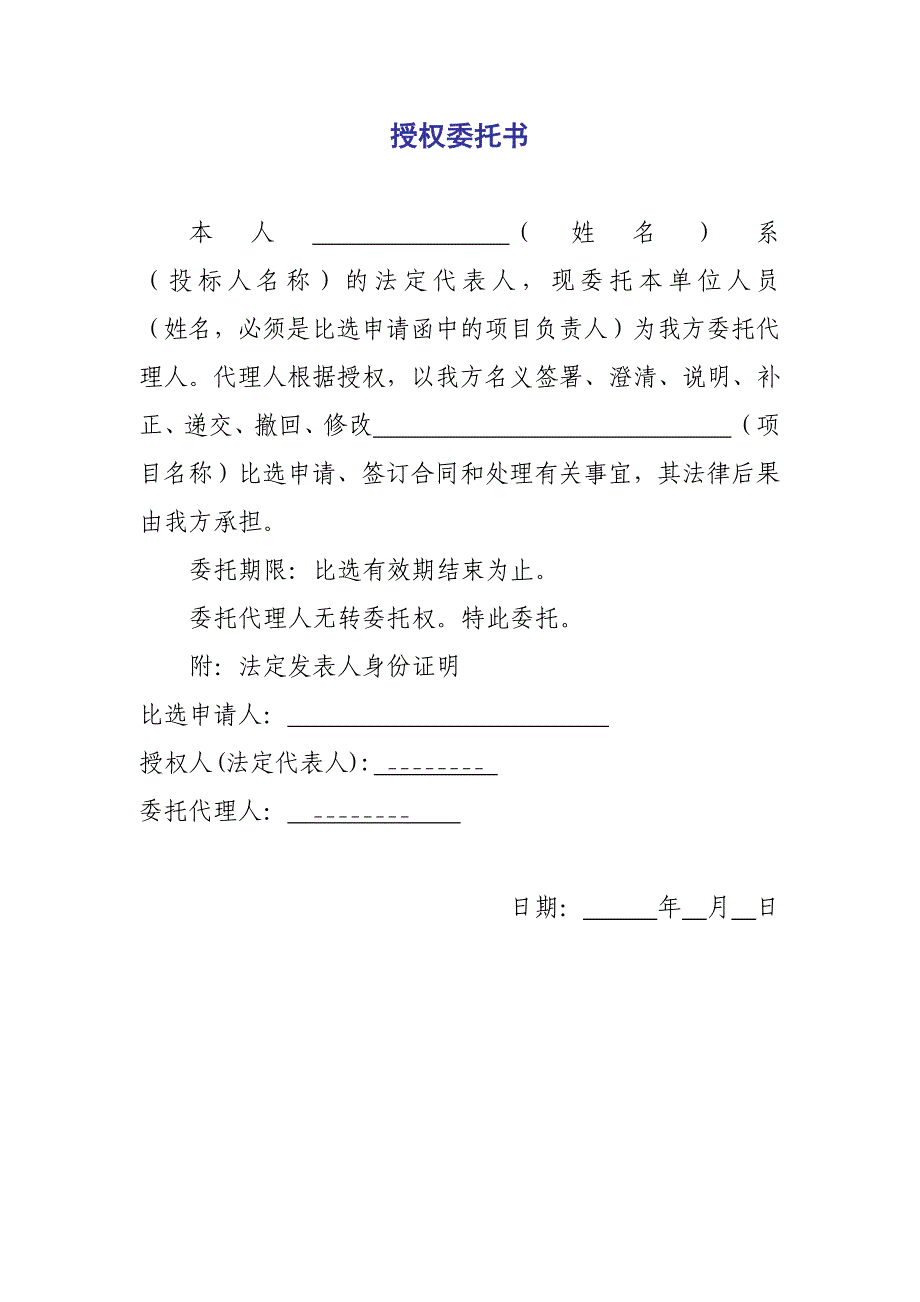 授权委托书
本人________________(姓名)系
(投标人名称)的法定代表人,现委托本单位人员
(姓名,必须是比选申请函中的项目负责人)为我方委托代
理人。代理人根据授权,以我方名义签署、澄清、说明、补
正、递交、撤回、修改_____________________________(项
目名称)比选申请、签订合同和处理有关事宜,其法律后果
由我方承担。
委托期限:比选有效期结束为止。
委托代理人无转委托权。特此委托。
附:法定发表人身份证明
比选申请人:__________________________
授权人(法定代表人):__________
委托代理人:______________
日期:______年__月__日